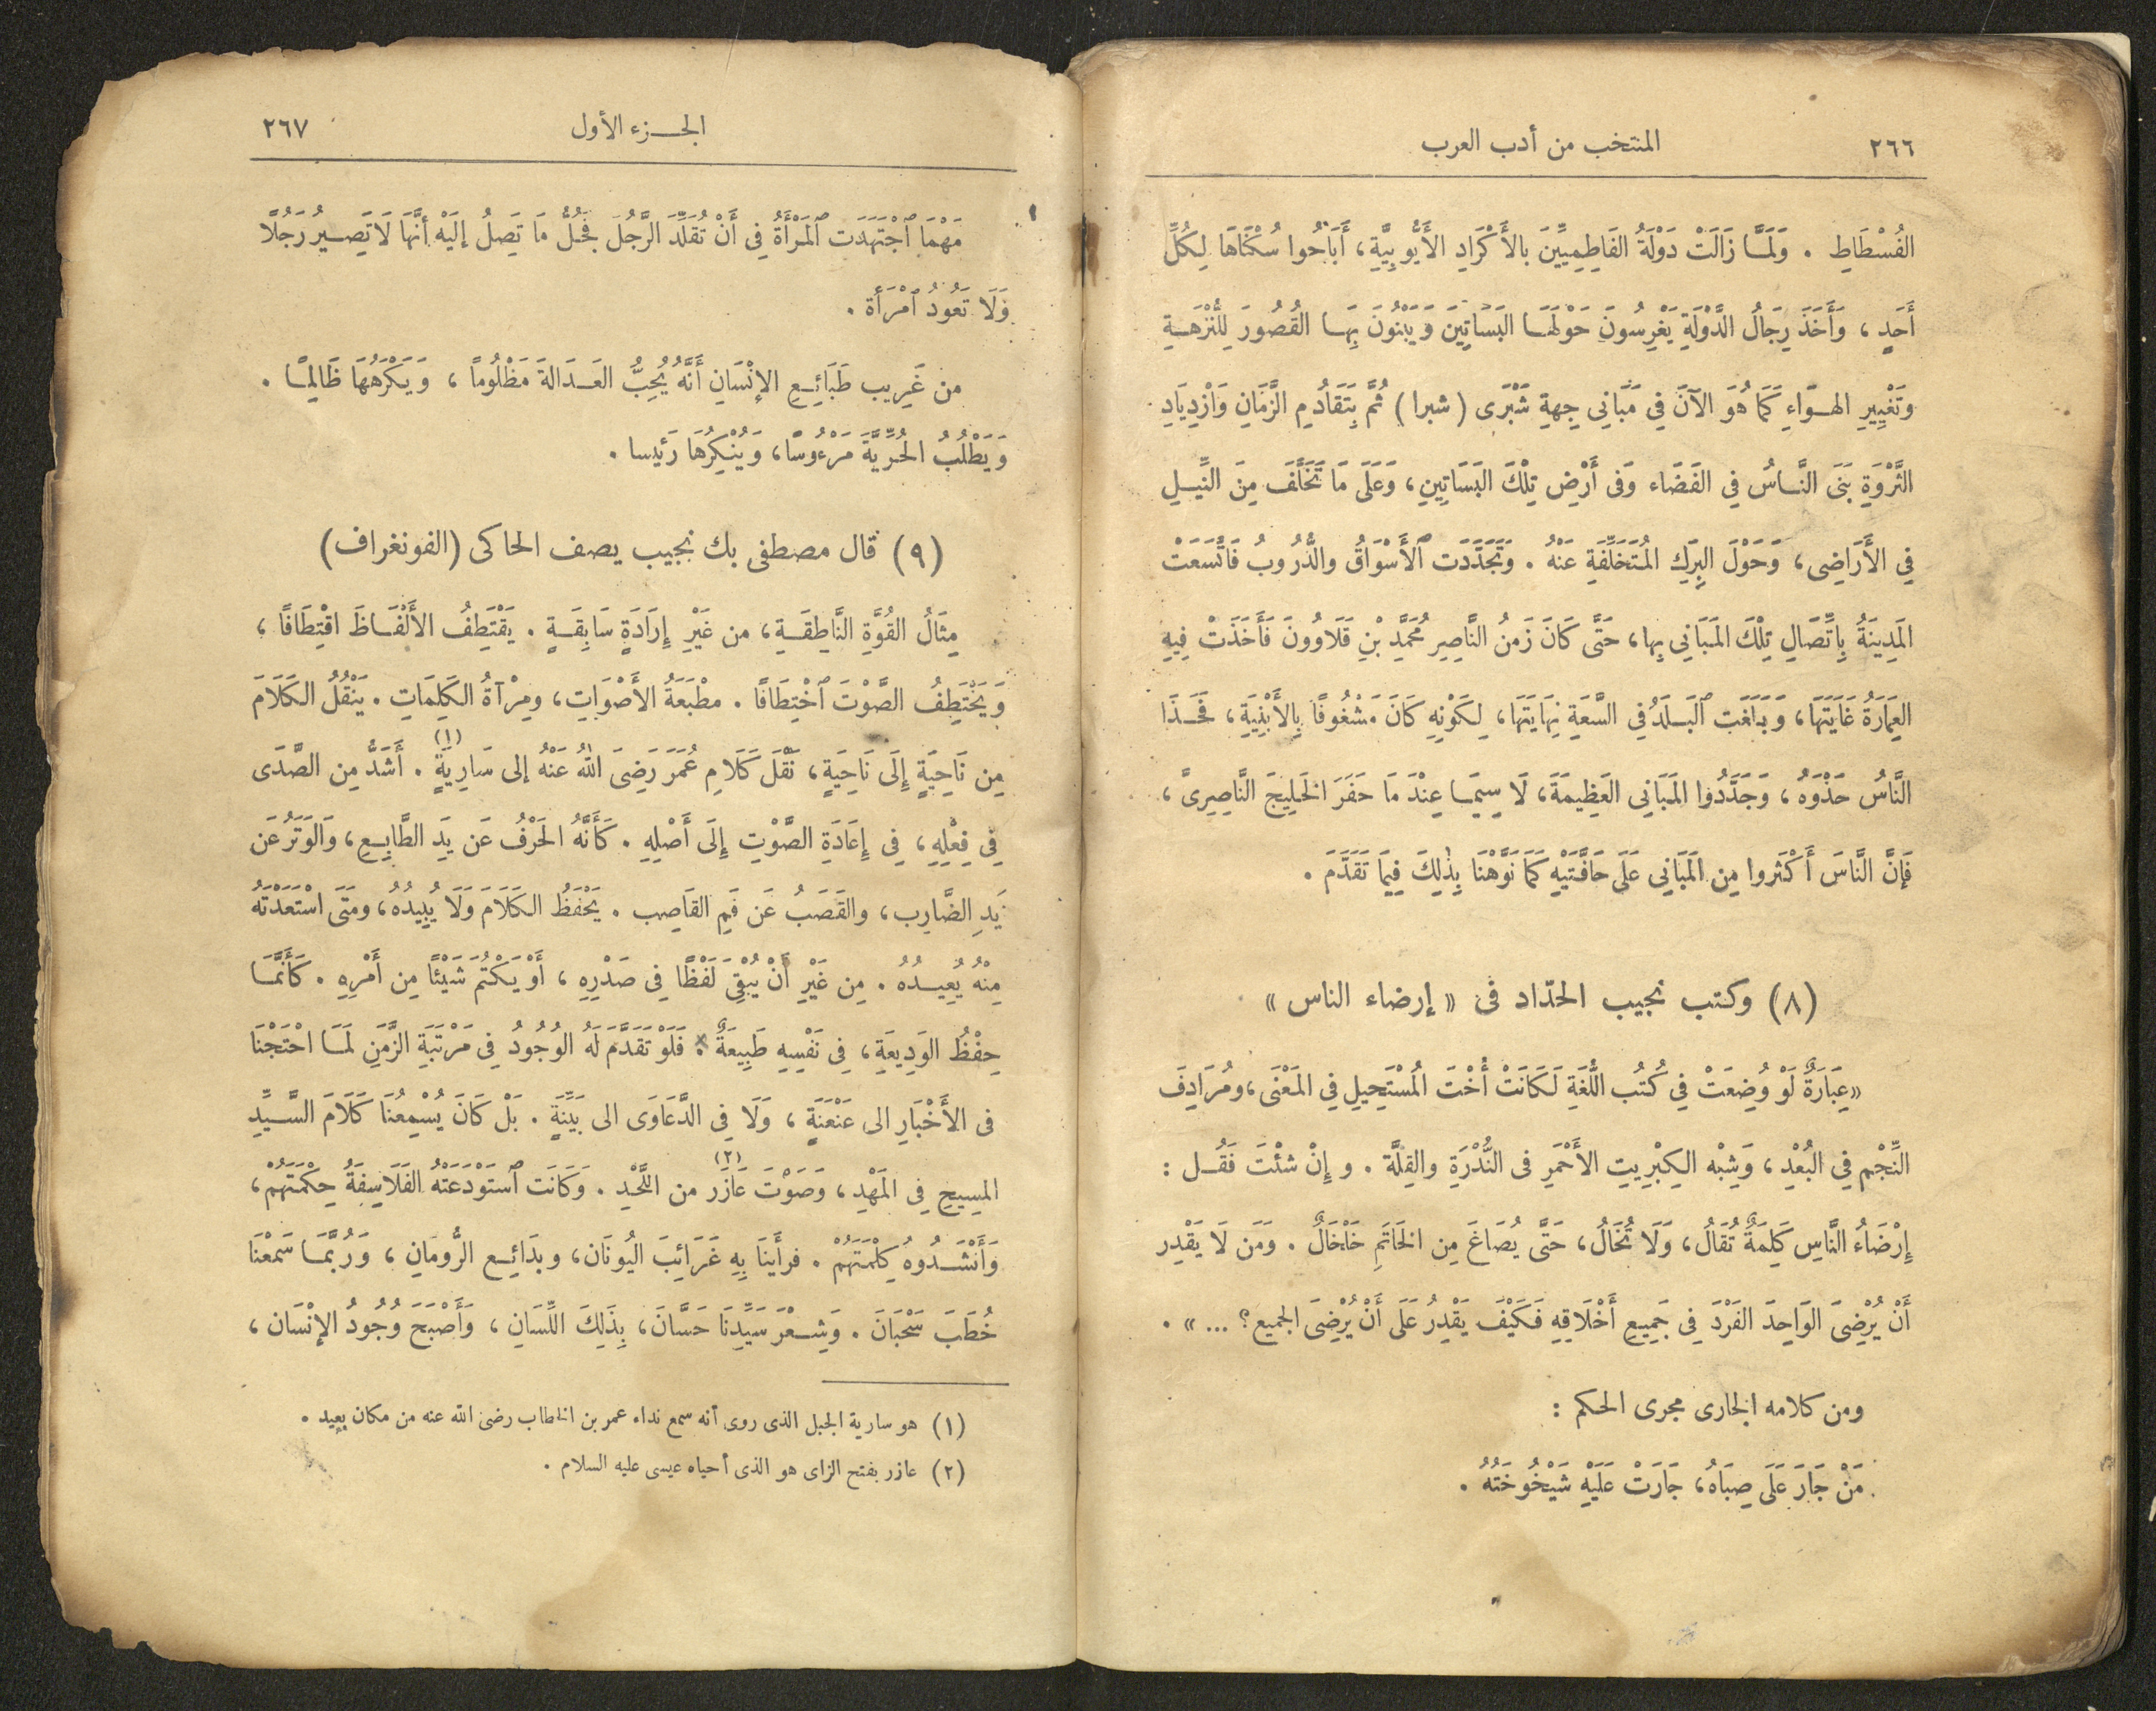 ٢٦٦
المنتخب من أدب العرب
الفُسْطَاطِ . وَلَمَّا زَالَتْ دَوْلَةُ الفَاطِمِيِّينَ بالأَكْرَادِ الأَيُّوبِيَّةِ، أَبَاحُوا سُكْنَاهَا لِكُلِّ
أَحَدٍ، وَأَخَذَ رِجَالُ الدَّوْلَةِ يَغْرِسُونَ حَوْلَهَا البَسَاتِينَ وَيَبْنُونَ بِهَا القُصُورَ لِلنُّزْهَةِ
وتَغْيِيرِ الهَوَاءِ كَمَا هُوَ الآنَ فِي مَبَانِى جِهةِ شَبْرَى (شبرا) ثُمَّ بِتَقَادُمِ الزَّمَانِ وَازْدِيَادِ
الثَّرْوَةِ بَنَى النَّاسُ فِي الفَضَاء وَفى أَرْضِ تِلْكَ البَسَاتِينِ، وَعَلَى مَا تَخَلَّفَ مِنَ النِّيلِ
فِي الأَرَاضِى، وَحَوْلَ البِرَكِ المُتَخَلِّفَةِ عَنْهُ . وَتَجَدَّدَت ٱلأَسْوَاقُ والدُّرُوبُ فَاتَّسَعَتْ
المَدِينَةُ بِاتِّصَالِ تِلْكَ المَبَانِى بِها، حَتَّى كَانَ زَمنُ النَّاصِرِ مُحَمَّدِ بْنِ قَلَاوُونَ فَأَخَذَتْ فِيهِ
العِمَارَةُ غَايَتَهَا، وَبَلَغَتِ ٱلبَلَدُ فِي السَّعَةِ نِهَايَتَهَا، لِكَوْنِهِ كَانَ مَشْغُوفًا بِالأَبْنِيَةِ، فَحَذَا
النَّاسُ حَذْوَهُ، وَجَدَّدُوا المَبَانِى العَظِيمَةَ، لَا سِيمَا عِنْدَ مَا حَفَرَ الخَلِيجَ النَّاصِرِىَّ،
فَإِنَّ النَّاسَ أَكْثَروا مِن المَبَانِى عَلَى حَافَّتَيْهِ كَمَا نَوَّهْنَا بِذٰلِكَ فِيمَا تَقَدَّمَ .
(٨) وكتب نجيب الحدّاد فى « إرضاء الناس »
«عِبَارَةٌ لَوْ وُضِعَتْ فِي كُتُب اللُّغَةِ لَكَانَتْ أُخْتَ المُسْتَحِيلِ فِي المَعْنَى، ومُرَادِفَ
النَّجْمِ فِي البُعْدِ، وَشِبْه الكِبْرِيتِ الأَحْمَرِ فى النُّدْرَةِ والقِلَّة . وإِنْ شئْتَ فَقُل :
إِرْضَاءُ النَّاسِ كَلِمَةٌ تُقَالُ، وَلَا تُخَالُ، حَتَّى يُصَاغَ مِن الخَاتَمِ خَلْخَالٌ . وَمَن لَا يَقْدِر
أَنْ يُرْضِىَ الوَاحِدَ الفَرْدَ فِى جَمِيعِ أَخْلَاقِهِ فَكَيْفَ يَقْدِرُ عَلَى أَنْ يُرْضِىَ الجميع؟ ... » .
ومن كلامه الجارى مجرى الحكم :
مَنْ جَارَ عَلَى صِبَاهُ، جَارَتْ عَلَيْهِ شَيْخُوخَتُهُ .
الجزء الأول
٢٦٧
مَهْمَا ٱجْتَهَدَت ٱلمَرْأَةُ فِي أَنْ تُقَلِّدَ الرَّجُلَ فَجُلُّ مَا تَصِلُ إلَيْهِ أنَّهَا لَا تَصِيرُ رَجُلًا
وَلَا تَعُودُ ٱمْرَأة .
من غَرِيب طَبَائِعِ الإنْسَانِ أَنَّهُ يُحِبُّ العَدَالةَ مَظْلُوماً، وَيَكْرَهُهَا ظَالِمًا .
وَيَطْلُبُ الحُرِّيَّةَ مَرْءُوسًا، وَيُنْكِرُهَا رَئِيسا .
(٩) قال مصطفى بك نجيب يصف الحاكى (الفونغراف)
مِثَالُ القُوَّةِ النَّاطِقَةِ، من غَيْرِ إِرَادَةٍ سَابِقَةٍ . يَقْتَطِفُ الأَلْفَاظَ اقْتِطَافًا،
وَيَخْتَطِفُ الصَّوْتَ ٱخْتِطَافًا . مطْبَعَةُ الأَصْوَاتِ، ومِرْآةُ الكَلِمَاتِ . يَنْقُلُ الكَلَامَ
مِن نَاحِيَةٍ إِلَى نَاحِيَةٍ، نَقْلَ كَلَامِ عُمَرَ رَضِىَ اللهُ عَنْهُ إلى سَارِيَةٍ (١) . أَشَدُّ مِن الصَّدَى
فِى فِعْلِهِ، فِى إِعَادَةِ الصَّوْتِ إِلَى أَصْلِهِ . كَأَنَّهُ الحَرْفُ عَن يَدِ الطَّابِعِ، وَالوَتَرُ عَن
يَدِ الضَّارِب، والقَصَبُ عَن فَمِ القَاصِب . يَحْفَظُ الكَلَامَ وَلَا يُبِيدُهُ، ومَتَى اسْتَعَدْتَهُ
مِنْهُ يُعِيدُهُ . مِن غَيْرِ أَنْ يُبْقِىَ لَفْظًا فِى صَدْرِهِ، أَوْ يَكْتُمَ شَيْئًا مِن أَمْرِهِ . كَأَنَّمَا
حِفْظُ الوَدِيعَةِ، فِى نَفْسِهِ طَبِيعَةٌ . فَلَوْ تَقَدَّمَ لَهُ الوُجُودُ فِى مَرْتَبَةِ الزَّمَنِ لَمَا احْتَجْنَا
فى الأَخْبَارِ الى عَنْعَنَةٍ، وَلَا فِى الدَّعَاوَى الى بَيِّنَةٍ . بَلْ كَانَ يُسْمِعُنَا كَلَامَ السَّيِّدِ
المَسِيحِ فِى المَهْدِ، وَصَوْتَ عَازَر (٢) من اللَّحْدِ . وَكَانَت ٱسْتَوْدَعَتْهُ الفَلَاسِفَةُ حِكْمَتَهُمْ،
وَأَنْشَدُوهُ كِلْمَتَهُمْ . فرأَينَا بِهِ غَرَائِبَ اليُونَان، وبدَائِعِ الرُّومَانِ، وَرُبَّمَا سَمعْنَا
خُطَبَ سَحْبَانَ . وَشِعْرَ سَيِّدِنَا حَسَّانَ، بِذَلِكَ اللِّسَانِ، وَأَصْبَحَ وُجُودُ الإنْسَان،
(١) هو سارية الجبل الذى روى أنه سمع نداء عمر بن الخطاب رضى الله عنه من مكان بعيد .
(٢) عازر بفتح الزاى هو الذى أحياه عيسى عليه السلام .